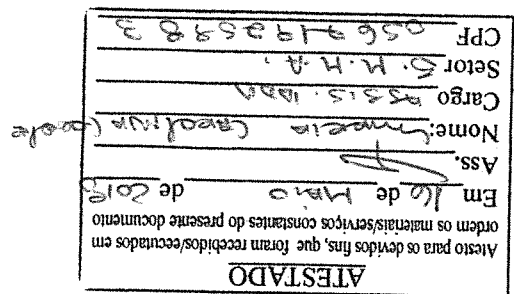 ATESTADO
Atesto para os devidos fins, que foram recebidos/executados em
ordem os materiais/serviços constantes do presente documento
Em 16 de MAIO de 2018
Ass.
Nome: CAROLINA
Cargo ASSIS. ADM
Setor S.M.A.
CPF